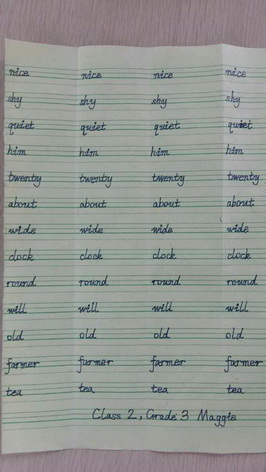 nice nice nice nice
shy shy shy shy
quiet quiet quiet quiet
him him him him
twenty twenty twenty twenty
about about about about
wide wide wide wide
clock clock clock clock
round round round round
will will will will
old old old old
farmer farmer farmer farmer
tea tea tea tea
Class 2, Grade 3 Maggie